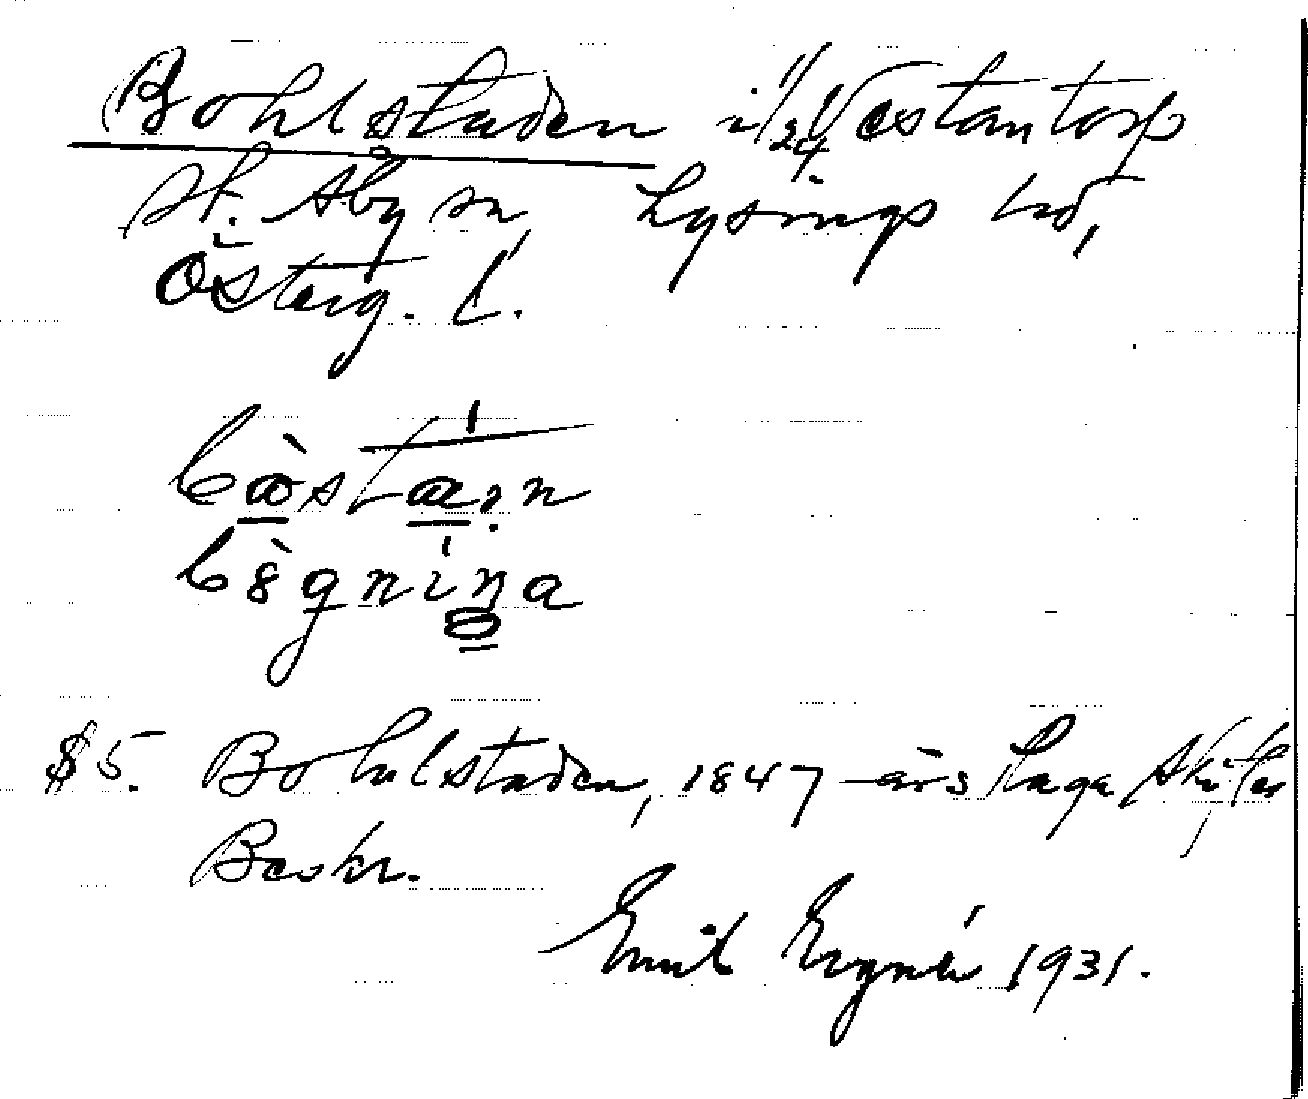 Bohlstaden i 1/24 Västantorp
St. Åby sn, Lysings hd,
Österg. l.
bòstan
bègnina
$5. Bohlstaden, 1847 års Laga Skiftes
Beskr.
Emil 1931.